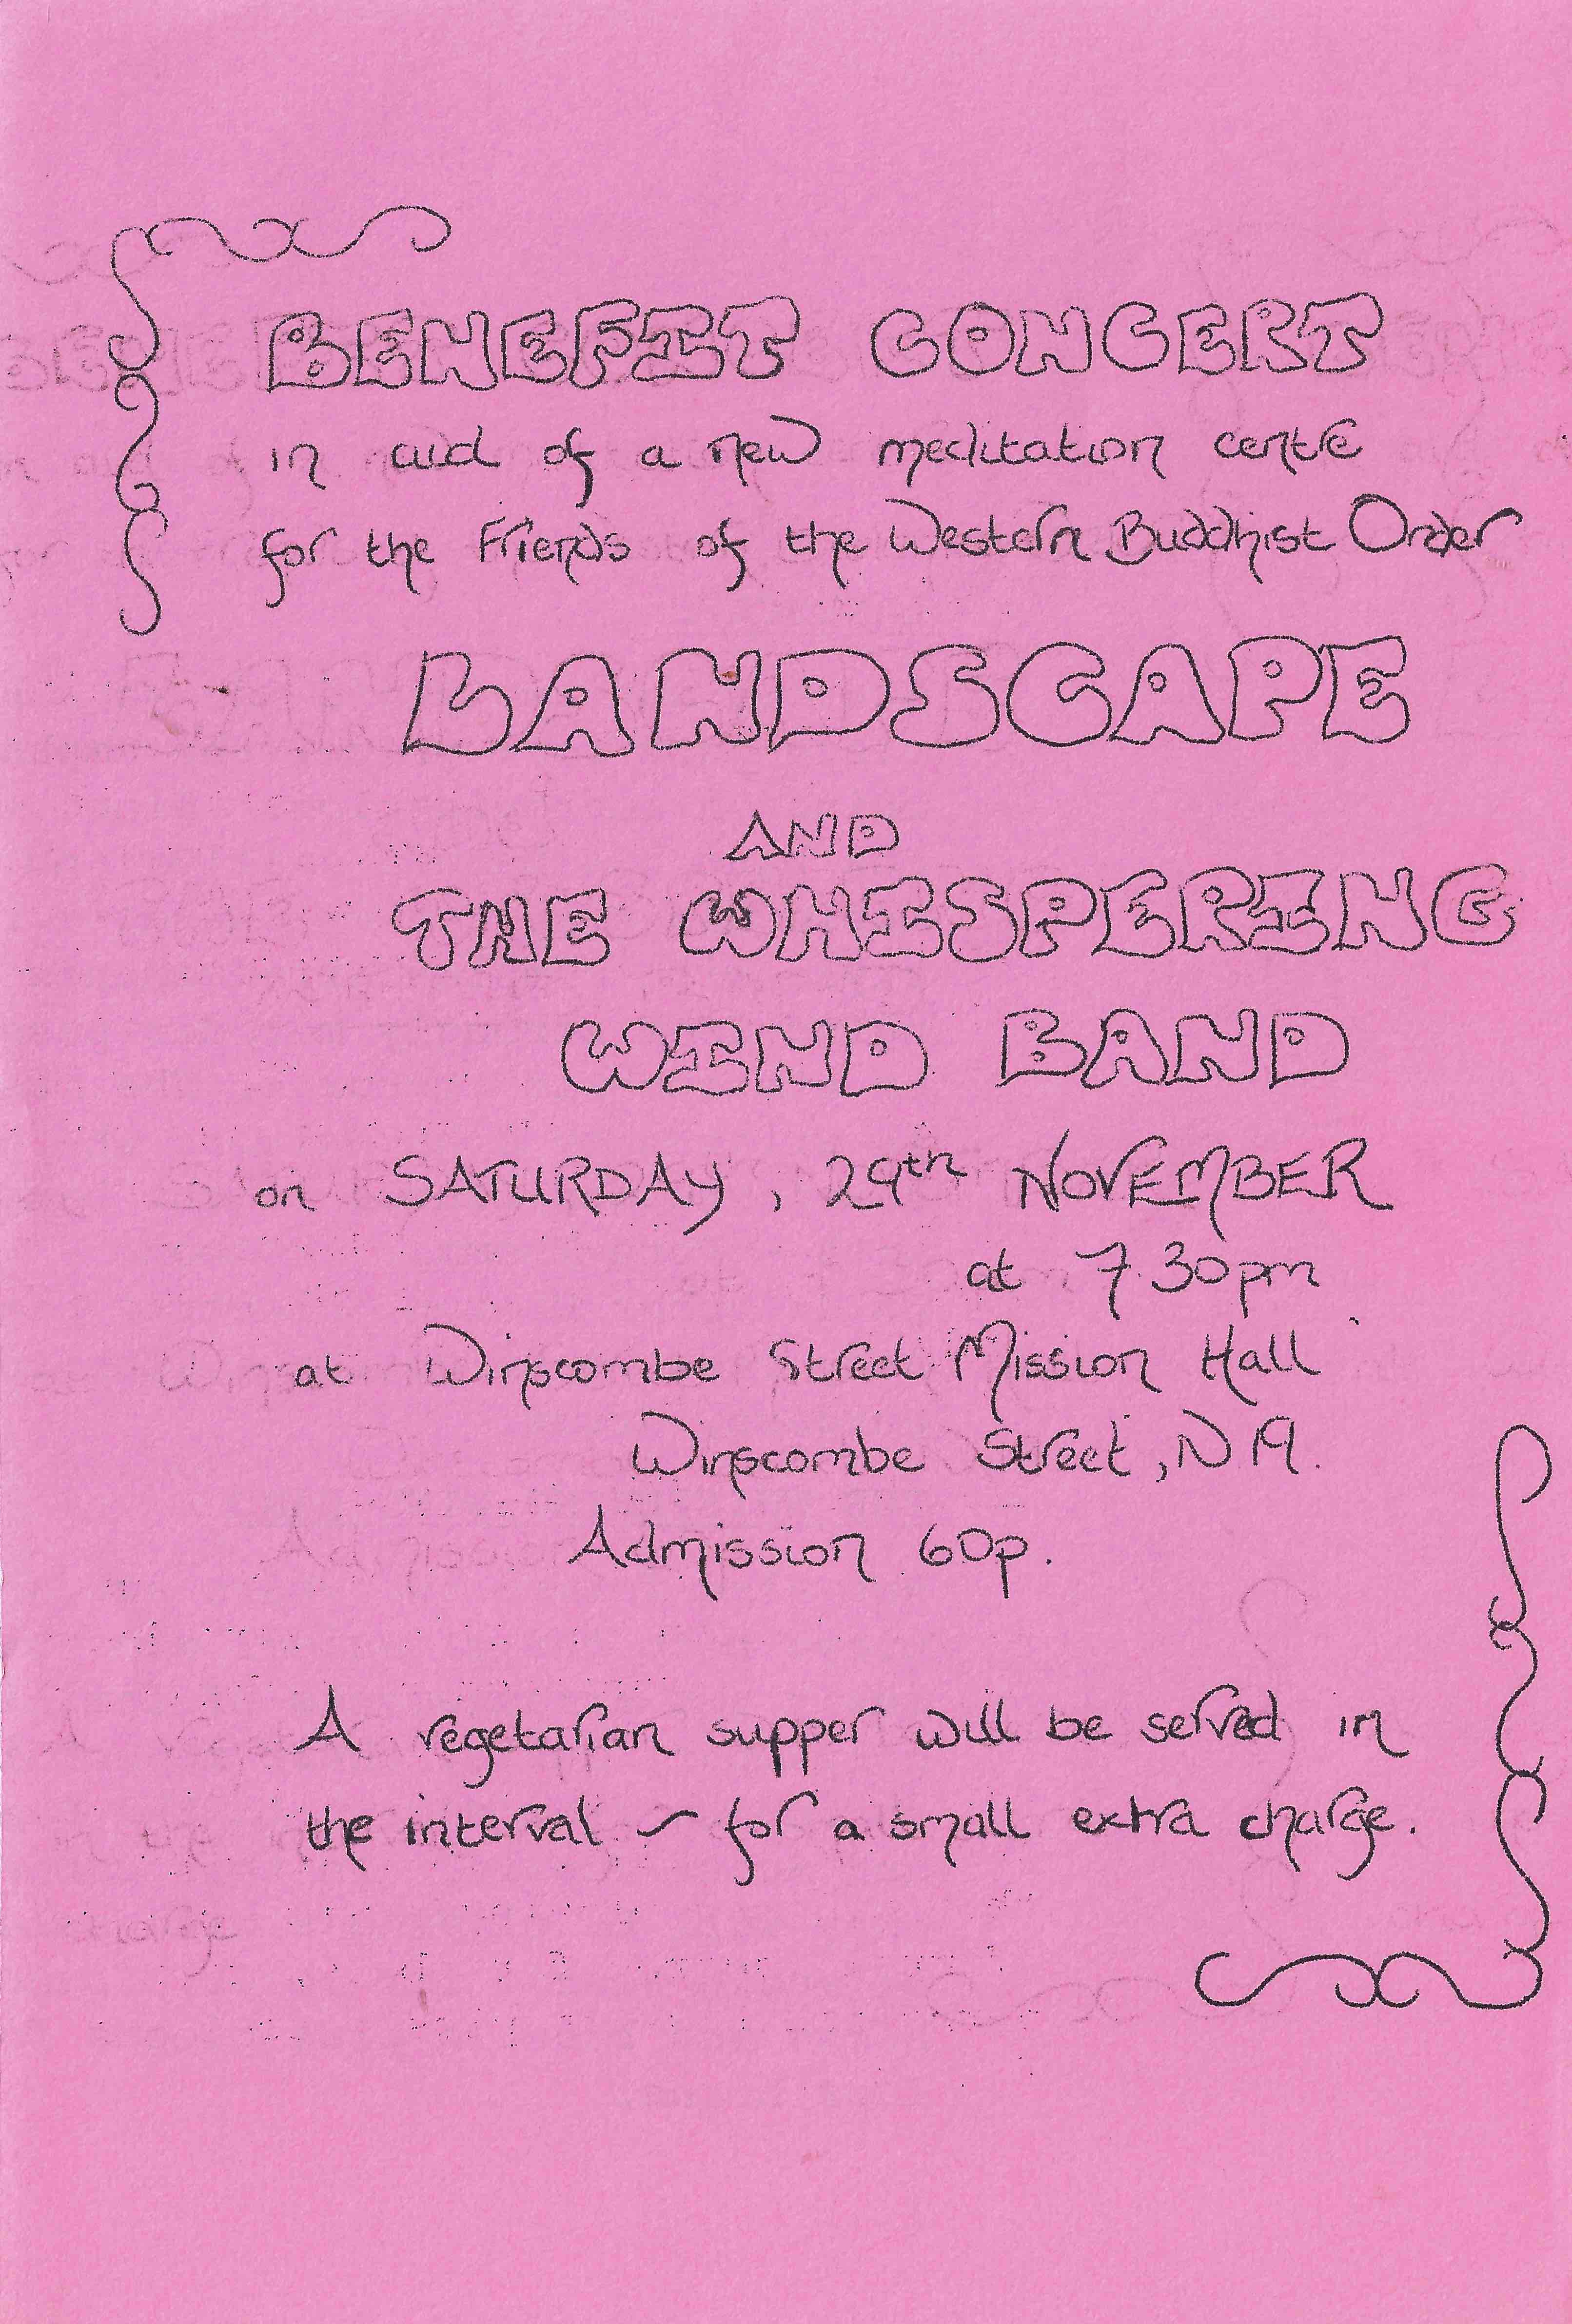 BENEFIT CONCERT
in aid of a new meditation centre
for the Friends of the Western Buddhist Order
LANDSCAPE
AND
THE WHISPERING
WIND BAND
on SATURDAY, 29th NOVEMBER
at 7.30pm
at Winscombe Street Mission Hall
Winscombe Street, N19.
Admission 60p.
A vegetarian supper will be served in
the interval ~ for a small extra charge.